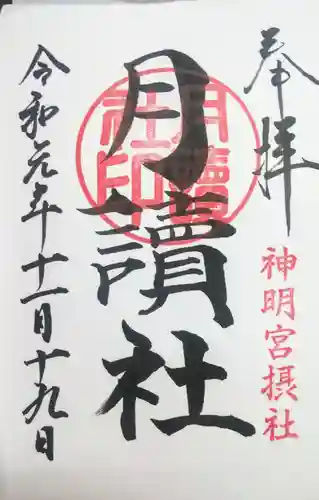 奉拝
神明宮摂社
月讀社
月讀社印
令和元年十一月十九日